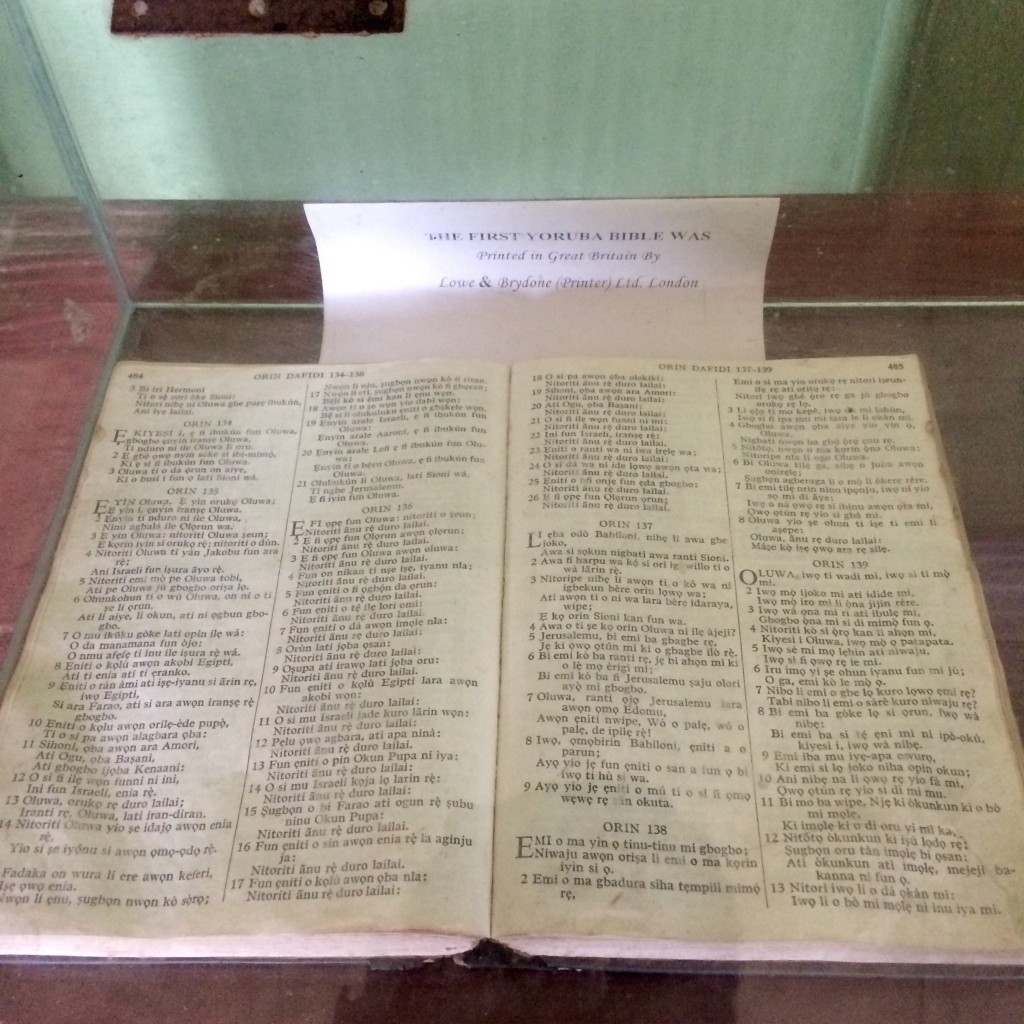 THE FIRST YORUBA BIBLE WAS
Printed in Great Britain By
Lowe & Brydone (Printer) Ltd. London
484
ORIN DAFIDI 134-136
3 Bi iri Hermoni
Ti o sẹ̀ sori òke Sioni:
Nitori nibẹ̀ ni Oluwa gbe paṣẹ ibukún,
Ani iye lailai.
ORIN 134
E KIYESI i, ẹ fi ibukún fun Oluwa,
gbogbo ẹnyin iranṣẹ Oluwa,
Ti nduro ni ile Oluwa li oru.
2 Ẹ gbé ọwọ nyin soke si ibi-mimọ́,
Ki ẹ si fi ibukún fun Oluwa.
3 Oluwa ti o da ọrun on aiye,
Ki o busi i fun ọ lati Sioni wá.
ORIN 135
E YIN Oluwa. Ẹ yin orukọ Oluwa;
Ẹ yin i, ẹnyin iranṣẹ Oluwa.
2 Ẹnyin ti nduro ni ile Oluwa,
Ninu agbala ile Ọlọrun wa.
3 Ẹ yin Oluwa: nitoriti Oluwa ṣeun;
Ẹ kọrin iyin si orukọ rẹ̀; nitoriti o dùn.
4 Nitoriti Oluwa ti yàn Jakobu fun ara
rẹ̀;
Ani Israeli fun iṣura ãyo rẹ̀.
5 Nitoriti emi mọ̀ pe Oluwa tobi,
Ati pe Oluwa jù gbogbo oriṣa lọ.
6 Ohunkohun ti o wù Oluwa, on ni o ti
ṣe li ọrun,
Ati li aiye, li okun, ati ni ọgbun gbo-
gbo.
7 O mu ikũku gòke lati opin ilẹ wá:
O da manamana fun òjo;
O nmu afẹfẹ ti inu ile iṣura rẹ̀ wá.
8 Ẹniti o kọlù awọn akọbi Egipti,
Ati ti enia ati ti ẹranko.
9 Ẹniti o rán àmi ati iṣẹ-iyanu si ãrin rẹ,
iwọ Egipti,
Si ara Farao, ati si ara awọn iranṣẹ rẹ̀
gbogbo.
10 Ẹniti o kọlu awọn orilẹ-ède pupọ̀,
Ti o si pa awọn alagbara ọba:
11 Sihoni, ọba awọn ara Amori,
Ati Ogu, ọba Baṣani,
Ati gbogbo ijọba Kenaani:
12 O si fi ilẹ wọn funni ni ini,
Ini fun Israeli, enia rẹ̀.
13 Oluwa, orukọ rẹ duro lailai;
Iranti rẹ, Oluwa, lati iran-diran.
14 Nitoriti Oluwa yio ṣe idajọ awọn enia
rẹ̀,
Yio si ṣe iyọ́nu si awọn ọmọ-ọdọ rẹ̀.
Fadaka on wura li ere awọn keferi,
iṣẹ ọwọ enia.
Nwọn li ẹnu, ṣugbọn nwọn kò sọ̀rọ̀;
Nwọn li oju, ṣugbọn nwọn kò fi riran.
17 Nwọn li eti, ṣugbọn nwọn kò fi gbọran;
Bẹ̃li kò si ẽmi kan li ẹnu wọn.
18 Awọn ti o ṣe wọn yio dabi wọn:
Bẹ̃ si li olukuluku ẹniti o gbẹkẹle wọn.
19 Ẹnyin arale Israeli, ẹ fi ibukún fun
Oluwa:
Ẹnyin arale Aaroni, ẹ fi ibukún fun
Oluwa.
20 Ẹnyin arale Lefi, ẹ fi ibukún fun Olu-
wa:
Ẹnyin ti o bẹ̀ru Oluwa, ẹ fi ibukún fun
Oluwa.
21 Olubukún li Oluwa, lati Sioni wá,
Ti ngbe Jerusalemu.
Ẹ fi iyin fun Oluwa.
ORIN 136
E FI ọpẹ fun Oluwa: nitoriti o ṣeun;
Nitoriti ãnu rẹ̀ duro lailai.
2 Ẹ fi ọpẹ fun Ọlọrun awọn ọlọrun:
Nitoriti ãnu rẹ̀ duro lailai.
3 Ẹ fi ọpẹ fun Oluwa awọn oluwa:
Nitoriti ãnu rẹ̀ duro lailai.
4 Fun on nikan ti nṣe iṣẹ iyanu nla:
Nitoriti ãnu rẹ̀ duro lailai.
5 Fun ẹniti o fi ọgbọ́n da ọrun:
Nitoriti ãnu rẹ̀ duro lailai.
6 Fun ẹniti o tẹ́ ilẹ lori omi:
Nitoriti ãnu rẹ̀ duro lailai.
7 Fun ẹniti o dá awọn imọlẹ nla:
Nitoriti ãnu rẹ̀ duro lailai.
8 Õrùn lati jọba ọsan:
Nitoriti ãnu rẹ̀ duro lailai.
9 Oṣupa ati irawọ lati jọba oru:
Nitoriti ãnu rẹ̀ duro lailai.
10 Fun ẹniti o kọlù Egipti lara awọn
akọbi wọn:
Nitoriti ãnu rẹ̀ duro lailai.
11 O si mu Israeli jade kuro lãrin wọn:
Nitoriti ãnu rẹ̀ duro lailai.
12 Pelu ọwọ agbara, ati apa ninà:
Nitoriti ãnu rẹ̀ duro lailai.
13 Fun ẹniti o pin Okun Pupa ni iya:
Nitoriti ãnu rẹ̀ duro lailai.
14 O si mu Israeli kọja lọ larin rẹ̀:
Nitoriti ãnu rẹ̀ duro lailai.
15 Ṣugbọn o bi Farao ati ogun rẹ̀ ṣubu
ninu Okun Pupa:
Nitoriti ãnu rẹ̀ duro lailai.
16 Fun ẹniti o sin awọn enia rẹ̀ la aginju
ja:
Nitoriti ãnu rẹ̀ duro lailai.
17 Fun ẹniti o kọlù awọn ọba nla:
Nitoriti ãnu rẹ̀ duro lailai:
ORIN DAFIDI 137-139
485
18 O si pa awọn ọba olokiki:
Nitoriti ãnu rẹ̀ duro lailai:
19 Sihoni, ọba awọn ara Amori:
Nitoriti ãnu rẹ̀ duro lailai:
20 Ati Ogu, ọba Baṣani:
Nitoriti ãnu rẹ̀ duro lailai:
21 O si fi ilẹ wọn funni ni ini:
Nitoriti ãnu rẹ̀ duro lailai:
22 Ini fun Israeli, iranṣẹ rẹ̀:
Nitoriti ãnu rẹ̀ duro lailai.
23 Ẹniti o ranti wa ni iwa irẹlẹ wa:
Nitoriti ãnu rẹ̀ duro lailai.
24 O si dá wa ni ide lọwọ awọn ọta wa;
Nitoriti ãnu rẹ̀ duro lailai.
25 Ẹniti o nfi onjẹ fun ẹda gbogbo:
Nitoriti ãnu rẹ̀ duro lailai.
26 Ẹ fi ọpẹ fun Ọlọrun ọrun;
Nitoriti ãnu rẹ̀ duro lailai.
ORIN 137
LI ẹba odò Babiloni, nibẹ̀ li awa gbe
joko,
Awa si sọkun nigbati awa ranti Sioni.
2 Awa fi harpu wa kọ́ si ori igi willo ti o
wà lãrin rẹ̀.
3 Nitoripe nibẹ̀ li awọn ti o kó wa ni
igbekun bère orin lọwọ wa;
Ati awọn ti o ni wa lara bère idaraya,
wipe;
Ẹ kọ orin Sioni kan fun wa.
4 Awa o ti ṣe kọ orin Oluwa ni ilẹ àjeji?
5 Jerusalemu, bi emi ba gbagbe rẹ,
Jẹ ki ọwọ ọ̀tún mi ki o gbagbe ilò rẹ̀.
6 Bi emi kò ba ranti rẹ, jẹ ki ahọn mi ki
o lẹ̀ mọ èrigì mi;
Bi emi kò ba fi Jerusalemu ṣaju olori
ayọ̀ mi gbogbo.
7 Oluwa, ranti ọjọ Jerusalemu lara
awọn ọmọ Edomu,
Awọn ẹniti nwipe, Wó o palẹ, wó o
palẹ, de ipilẹ rẹ̀!
8 Iwọ, ọmọbirin Babiloni, ẹniti a o
parun;
Ayọ̀ yio jẹ fun ẹniti o san a fun ọ bi
iwọ ti hù si wa.
9 Ayọ̀ yio jẹ ẹniti o mú ti o si fi ọmọ
wẹwẹ rẹ okuta.
ORIN 138
EMI o ma yin ọ tinu-tinu mi gbogbo;
Niwaju awọn oriṣa li emi o ma kọrin
iyin si ọ.
2 Emi o ma gbadura siha tẹmpili mimọ́
rẹ,
Emi o si ma yin orukọ rẹ nitori iṣeun-
ifẹ rẹ ati otitọ rẹ:
Nitori iwọ gbé ọ̀rọ rẹ ga jù gbogbo
orukọ rẹ lọ.
3 Li ọjọ ti mo kepè, iwọ da mi lohùn,
Iwọ si fi ipa mu mi lara le li ọkàn mi.
4 Gbogbo awọn ọba aiye yio yin ọ,
Oluwa,
Nigbati nwọn ba gbọ́ ọ̀rọ ẹnu rẹ.
5 Nitõtọ, nwọn o ma kọrin ọ̀na Oluwa:
Nitoripe nla li ogo Oluwa.
6 Bi Oluwa tilẹ ga, sibẹ̀ o juba awọn
onirẹlẹ;
Ṣugbọn agberaga li o mọ̀ li òkere rére.
7 Bi emi tilẹ nrin ninu ipọnju, iwọ ni yio
sọ mi di ãye;
Iwọ o nà ọwọ rẹ si ibinu awọn ọta mi,
Ọwọ ọ̀tún rẹ yio si gbà mi.
8 Oluwa yio ṣe ohun ti iṣe ti emi li
aṣepe;
Oluwa, ãnu rẹ duro lailai:
Máṣe kọ̀ iṣẹ ọwọ ara rẹ silẹ.
ORIN 139
OLUWA, iwọ ti wadi mi, iwọ si ti mọ̀
mi.
2 Iwọ mọ̀ ijoko mi ati idide mi,
Iwọ mọ̀ iro mi li ọ̀na jijin réré.
3 Iwọ wá ọ̀na mi ri ati ibulẹ̀ mi,
Gbogbo ọ̀na mi si di mimọ̀ fun ọ.
4 Nitoriti kò si ọ̀rọ kan li ahọn mi,
Kiyesi i Oluwa, iwọ mọ̀ ọ patapata.
5 Iwọ sé mi mọ lẹhin ati niwaju,
Iwọ si fi ọwọ rẹ le mi.
6 Iru ìmọ yi ṣe ohun iyanu fun mi jù;
O ga, emi kò le mọ̀ ọ.
7 Nibo li emi o gbe lọ kuro lọwọ ẹmi rẹ?
Tabi nibo li emi o sárè kuro niwaju rẹ?
8 Bi emi ba gòke lọ si ọrun, iwọ wà
nibẹ̀:
Bi emi ba si tẹ́ ẹni mi ni ipò-okú,
kiyesi i, iwọ wà nibẹ̀.
9 Emi iba mu iyẹ-apa owurọ,
Ki emi si lọ joko niha opin okun;
10 Ani nibẹ̀ na li ọwọ rẹ yio fà mi,
Ọwọ ọ̀tún rẹ yio si di mi mu.
11 Bi mo ba wipe, Njẹ ki òkunkun ki o bò
mi mọlẹ;
Ki imọlẹ ki o di oru yi mi ka.
12 Nitõtọ òkunkun ki iṣú lọdọ rẹ;
Ṣugbọn oru tàn imọlẹ bi ọsan;
Ati òkunkun ati imọlẹ, mejeji ba-
kanna ni fun ọ.
13 Nitori iwọ li o dá ọkàn mi:
Iwọ li o bò mi mọlẹ ni inu iya mi.